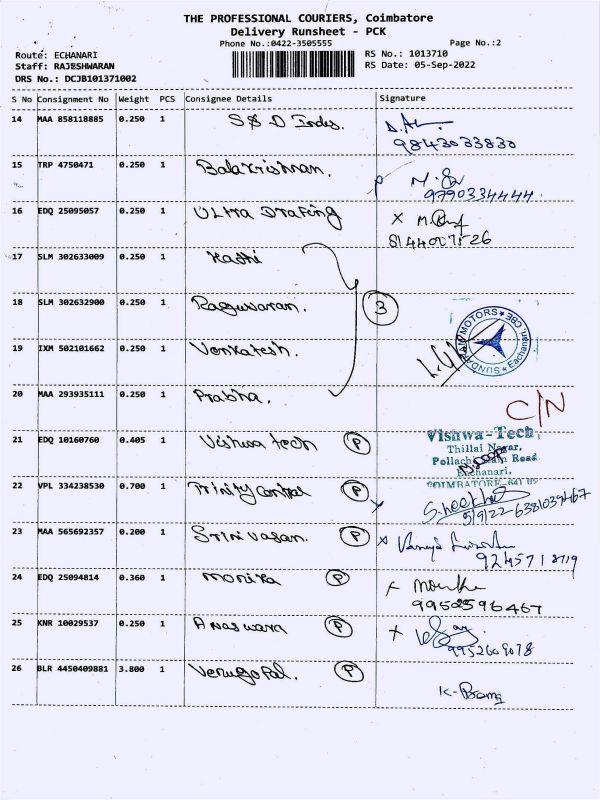 THE PROFESSIONAL COURIERS, Coimbatore
Delivery Runsheet - PCK
Phone No.:0422-3505555
Page No.:2
Route: ECHANARI
RS No.: 1013710
Staff: RAJESHWARAN
RS Date: 05-Sep-2022
DRS No.: DCJB101371002
S No Consignment No Weight PCS Consignee Details Signature
14 MAA 858118885 0.250 1 S&D Indes.
9843033830
15 TRP 4750471 0.250 1 Balakrishnan.
9790334444
16 EDQ 25095057 0.250 1 Ultra Drafing
8144007526
17 SLM 302633009 0.250 1 Kathi
18 SLM 302632900 0.250 1 Raguvaran. 3
SUNDARAM MOTORS Eachanari, CBE
19 IXM 502101662 0.250 1 Venkatesh.
20 MAA 293935111 0.250 1 Prabha.
C/N
21 EDQ 10160760 0.405 1 Vishwa tech P
Vishwa-Tech
Thillai Nagar,
Pollachi Main Road
Eachanari,
COIMBATORE
22 VPL 334238530 0.700 1 Trinity Control P
5/9/22 6381039467
23 MAA 565692357 0.200 1 Srinivasan. P
9245718719
24 EDQ 25094814 0.360 1 Monika P
9952596467
25 KNR 10029537 0.250 1 Anaswara P
9952609078
26 BLR 4450409881 3.800 1 Venugopal. P